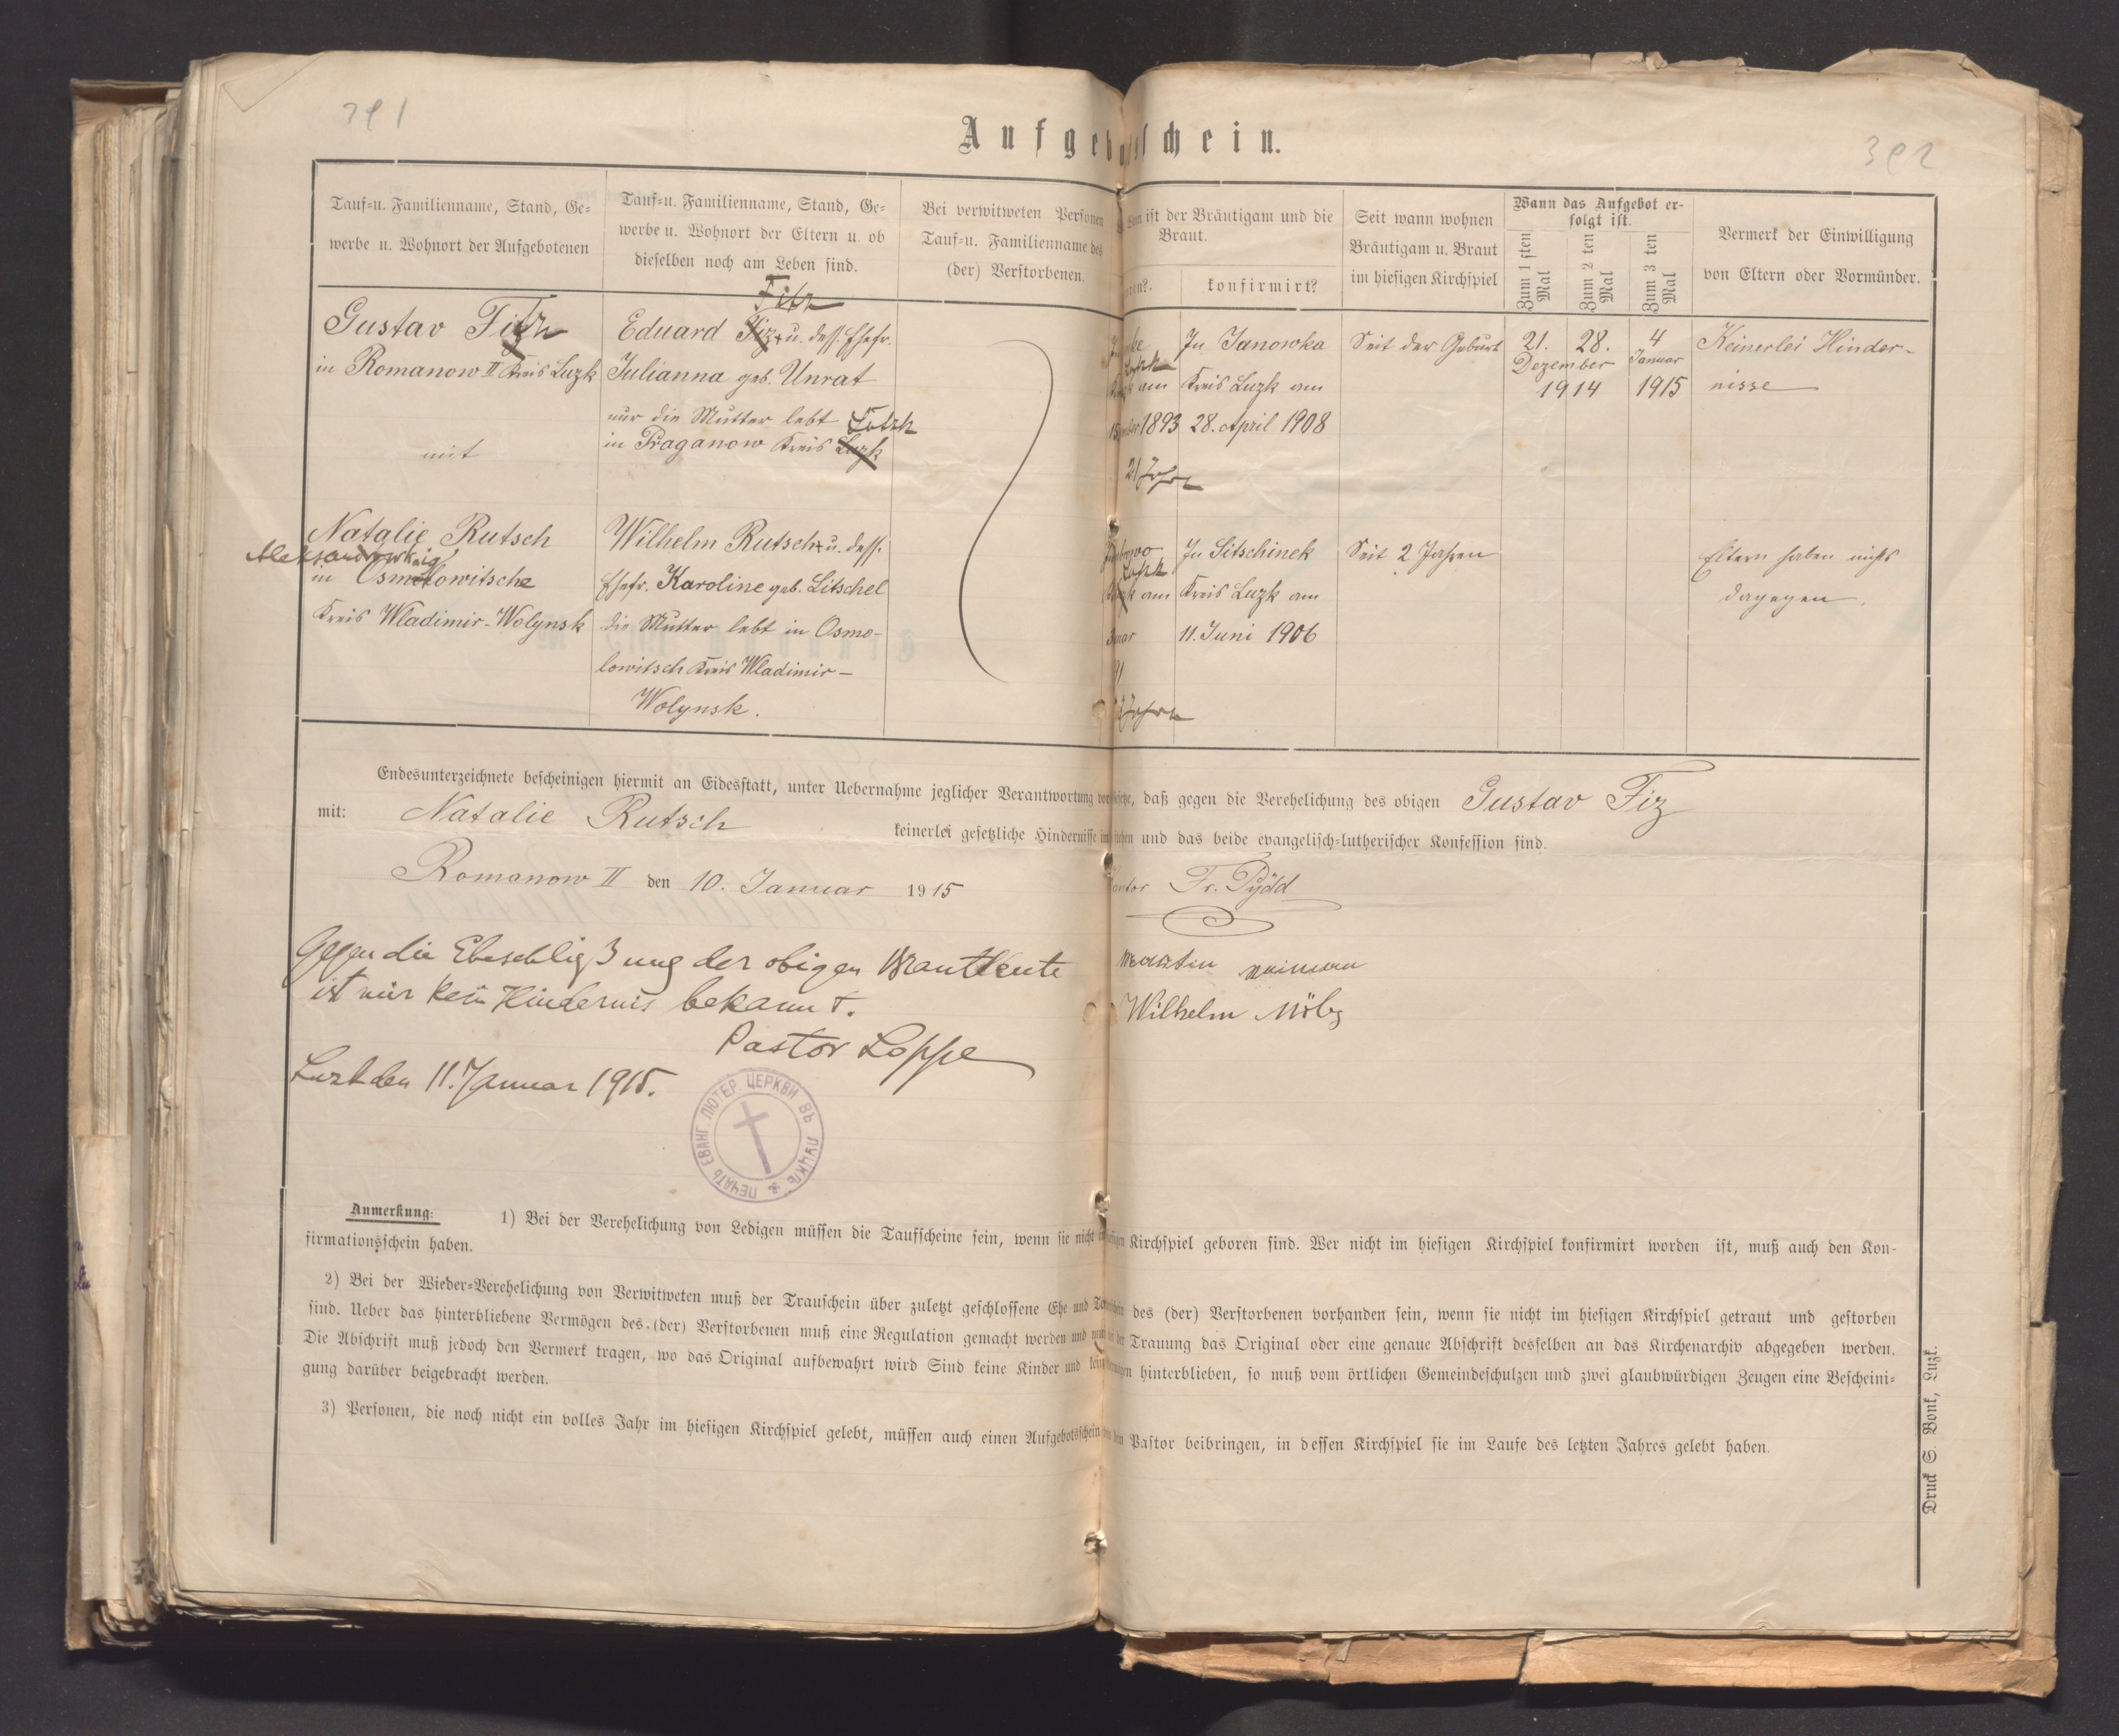 391
392
Aufgebotsschein.
Tauf=u. Familienname, Stand, Ge=
werbe u. Wohnort der Aufgebotenen
Tauf=u. Familienname, Stand, Ge=
werbe u. Wohnort der Eltern u. ob
dieselben noch am Leben sind.
Bei verwitweten Personen
Tauf=u. Familienname des
(der) Verstorbenen.
ist der Bräutigam und die
Braut.
konfirmirt?
Seit wann wohnen
Bräutigam u. Braut
im hiesigen Kirchspiel
Wann das Aufgebot er=
folgt ist.
Zum 1 sten
Mal
Zum 2 ten
Mal
Zum 3 ten
Mal
Vermerk der Einwilligung
von Eltern oder Vormünder.
Gustav Fitz
in Romanow II Kreis Luzk
mit
Fitz
Eduard Fiz † u. dess. Ehefr.
Julianna geb. Unrat
nur die Mutter lebt Lutzk
in Praganow Kreis Luzk
am
1893
21 Jahre
In Janowka
Kreis Luzk am
28. April 1908
Seit der Geburt
21. 28. 4
Dezember Januar
1914 1915
Keinerlei Hinder-
nisse
Natalie Rutsch
in Osmolowitsche
Kreis Wladimir-Wolynsk
Wilhelm Rutsch † u. dess.
Ehefr. Karoline geb. Litschel
die Mutter lebt in Osmo-
lowitsch Kreis Wladimir-
Wolynsk.
am
Jahre
In Sitschinek
Kreis Luzk am
11. Juni 1906
Seit 2 Jahren
Eltern haben nichts
dagegen.
Endesunterzeichnete bescheinigen hiermit an Eidesstatt, unter Uebernahme jeglicher Verantwortung vor Gesetze, daß gegen die Verehelichung des obigen Gustav Fiz
mit: Natalie Rutsch keinerlei gesetzliche Hindernisse im stehen und das beide evangelisch=lutherischer Konfession sind.
Romanow II den 10. Januar 1915
Kantor Fr. Pydd
Gegen die Eheschließung der obigen Brautleute
ist mir kein Hindernis bekannt.
Pastor Loppe
Luzk den 11. Januar 1915.
Martin
Wilhelm
ПЕЧАТЬ ЕВАНГ ЛЮТЕР ЦЕРКВИ ВЪ ЛУЦКѢ
Anmerkung: 1) Bei der Verehelichung von Ledigen müssen die Taufscheine sein, wenn sie nicht im hiesigen Kirchspiel geboren sind. Wer nicht im hiesigen Kirchspiel konfirmirt worden ist, muß auch den Kon-
firmationsschein haben.
2) Bei der Wieder=Verehelichung von Verwitweten muß der Trauschein über zuletzt geschlossene Ehe und Totenschein des (der) Verstorbenen vorhanden sein, wenn sie nicht im hiesigen Kirchspiel getraut und gestorben
sind. Ueber das hinterbliebene Vermögen des (der) Verstorbenen muß eine Regulation gemacht werden und muß bei der Trauung das Original oder eine genaue Abschrift desselben an das Kirchenarchiv abgegeben werden.
Die Abschrift muß jedoch den Vermerk tragen, wo das Original aufbewahrt wird Sind keine Kinder und kein Vermögen hinterblieben, so muß vom örtlichen Gemeindeschulzen und zwei glaubwürdigen Zeugen eine Bescheini=
gung darüber beigebracht werden.
3) Personen, die noch nicht ein volles Jahr im hiesigen Kirchspiel gelebt, müssen auch einen Aufgebotsschein von dem Pastor beibringen, in dessen Kirchspiel sie im Laufe des letzten Jahres gelebt haben.
Druck S. Bonk, Luzk.